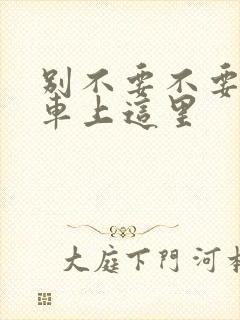 別不要不要
車上這里
大庭下門河